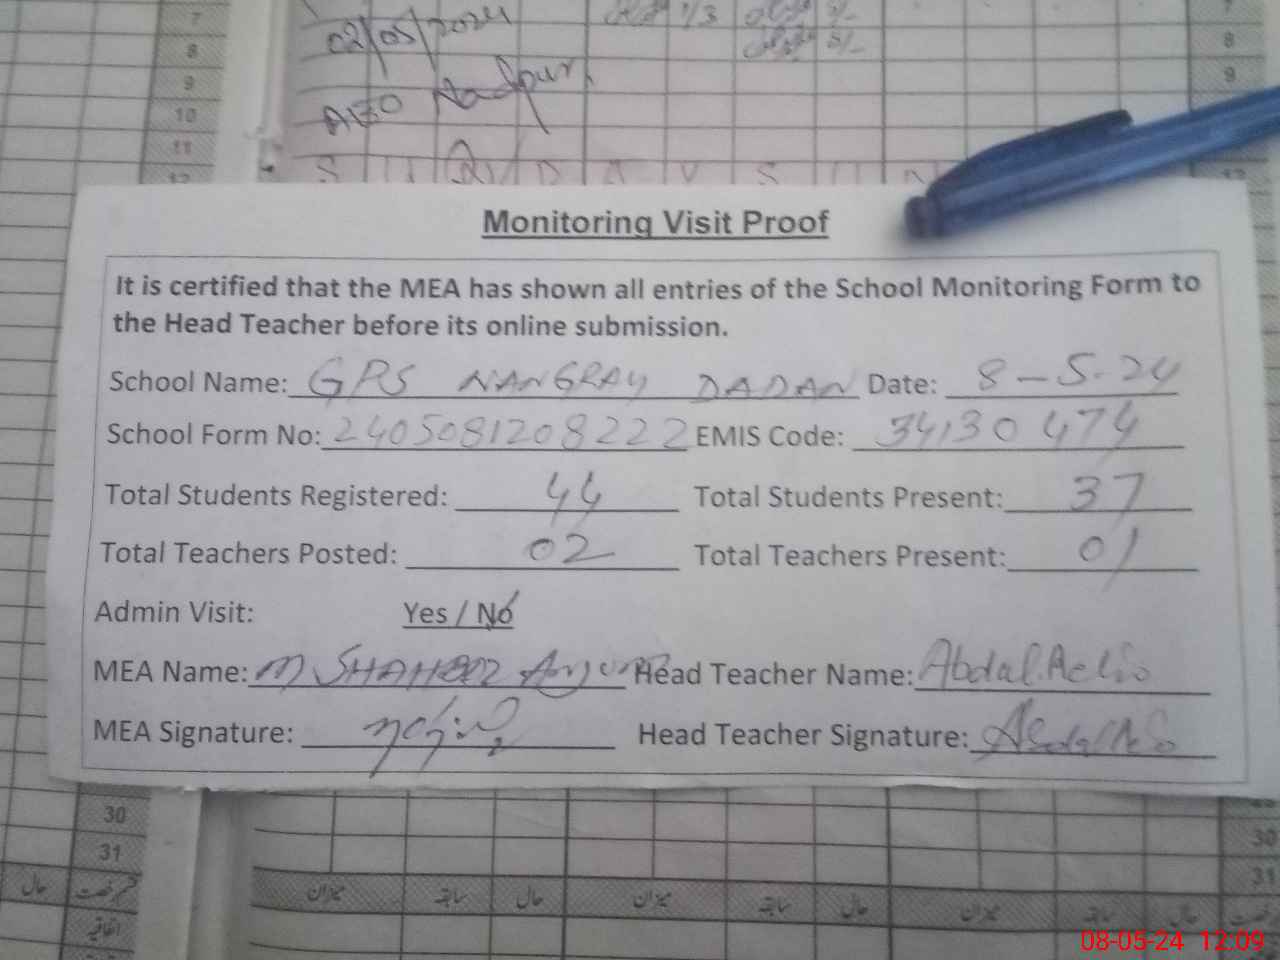 7
8
9
10
11
12
02/05/2024
AEO
1/3
7
8
9
S U N D A Y S U N
Monitoring Visit Proof
It is certified that the MEA has shown all entries of the School Monitoring Form to
the Head Teacher before its online submission.
School Name: GPS NANGRAY DADAN Date: 8-5-24
School Form No: 2405081208222 EMIS Code: 34130474
Total Students Registered: 44 Total Students Present: 37
Total Teachers Posted: 02 Total Teachers Present: 01
Admin Visit: Yes / No
MEA Name: M SHAHBAZ Anjum Head Teacher Name: Abdal
MEA Signature: Head Teacher Signature:
30 30
31 31
حال میزان سابقہ حال میزان سابقہ حال میزان سابقہ حال
اتفاقیہ
08-05-24 12:09